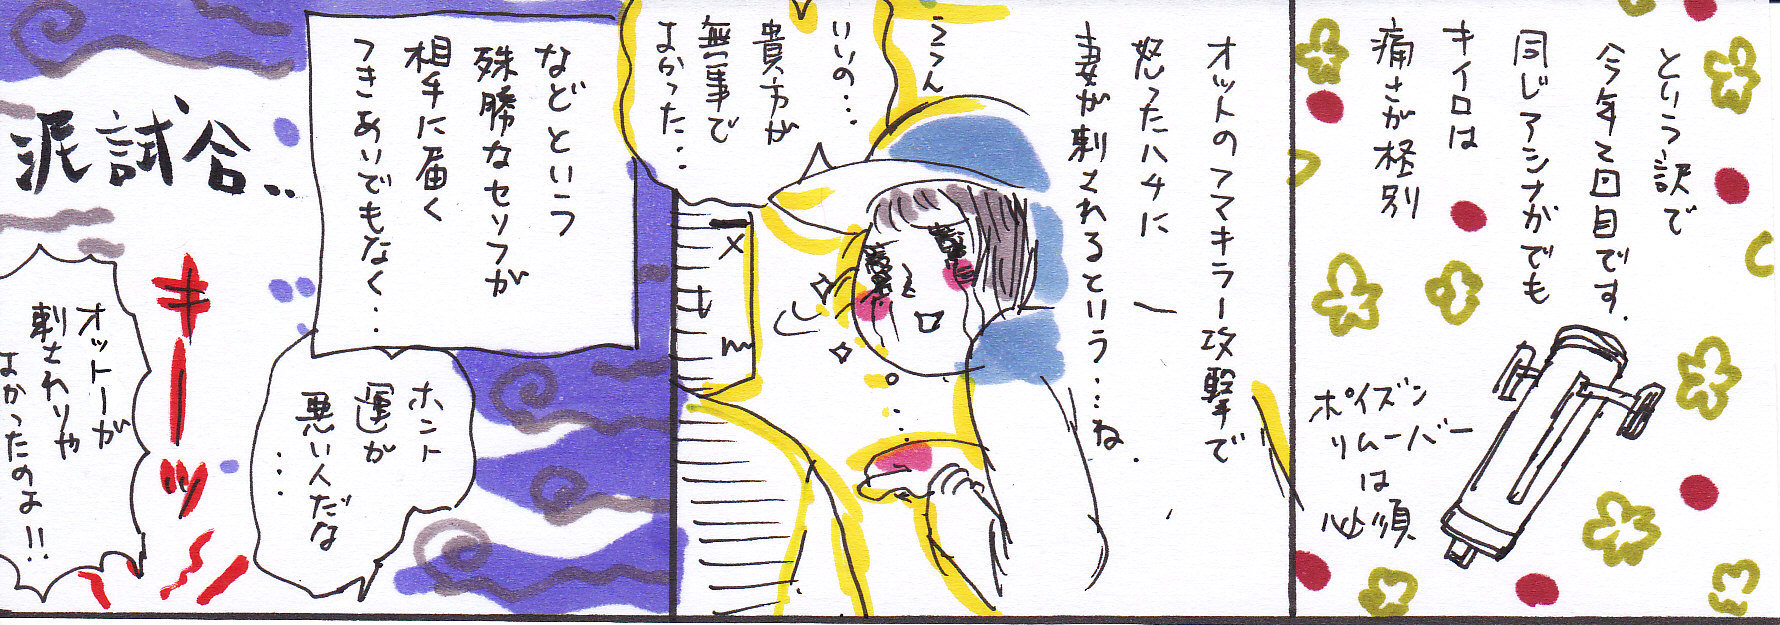 という訳で
今年2回目です.
同じアシナガでも
キイロは
痛さが格別
ポイズン
リムーバー
は
必須
オットのアマキラー攻撃で
怒ったハチに
妻が刺されるという…ね.
ううん
いいの…
貴方が
無事で
よかった…
などという
殊勝なセリフが
相手に届く
つきあいでもなく…
ホント
運が
悪い人だな
…
泥試合..
キーッ
オットーが
刺されりゃ
よかったのよ!!